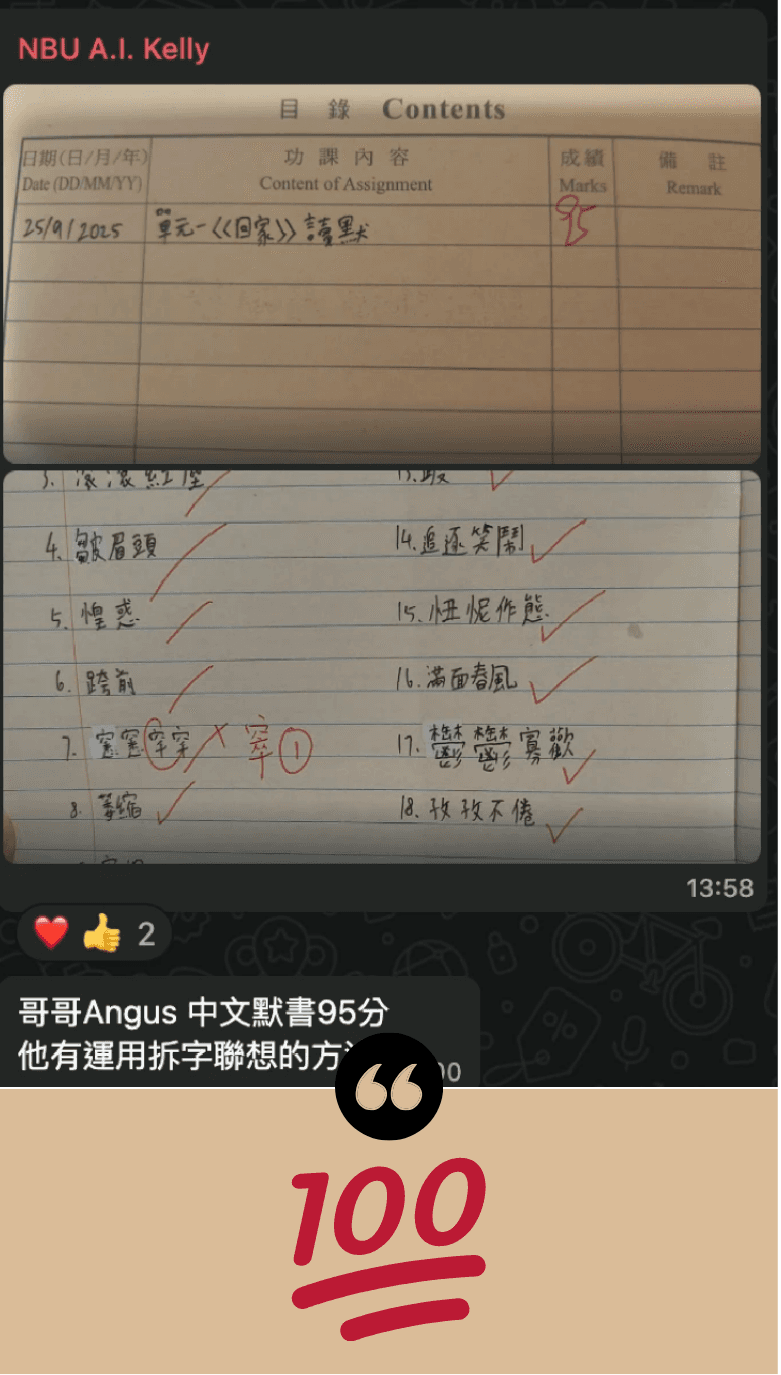 NBU A.I. Kelly
目錄 Contents
日期(日/月/年) 功課內容 成績 備註
Date (DD/MM/YY) Content of Assignment Marks Remark
25/9/2025 單元一《回家》讀默 95
3. 滾滾紅塵
13.
4. 皺眉頭
14. 追逐笑鬧
5. 惶惑
15. 忸怩作態
6. 跨前
16. 滿面春風
7. 窸窸窣窣 窣 1
17. 鬱鬱寡歡
8. 萎縮
18. 孜孜不倦
13:58
2
哥哥Angus 中文默書95分
他有運用拆字聯想的方
00
“
100